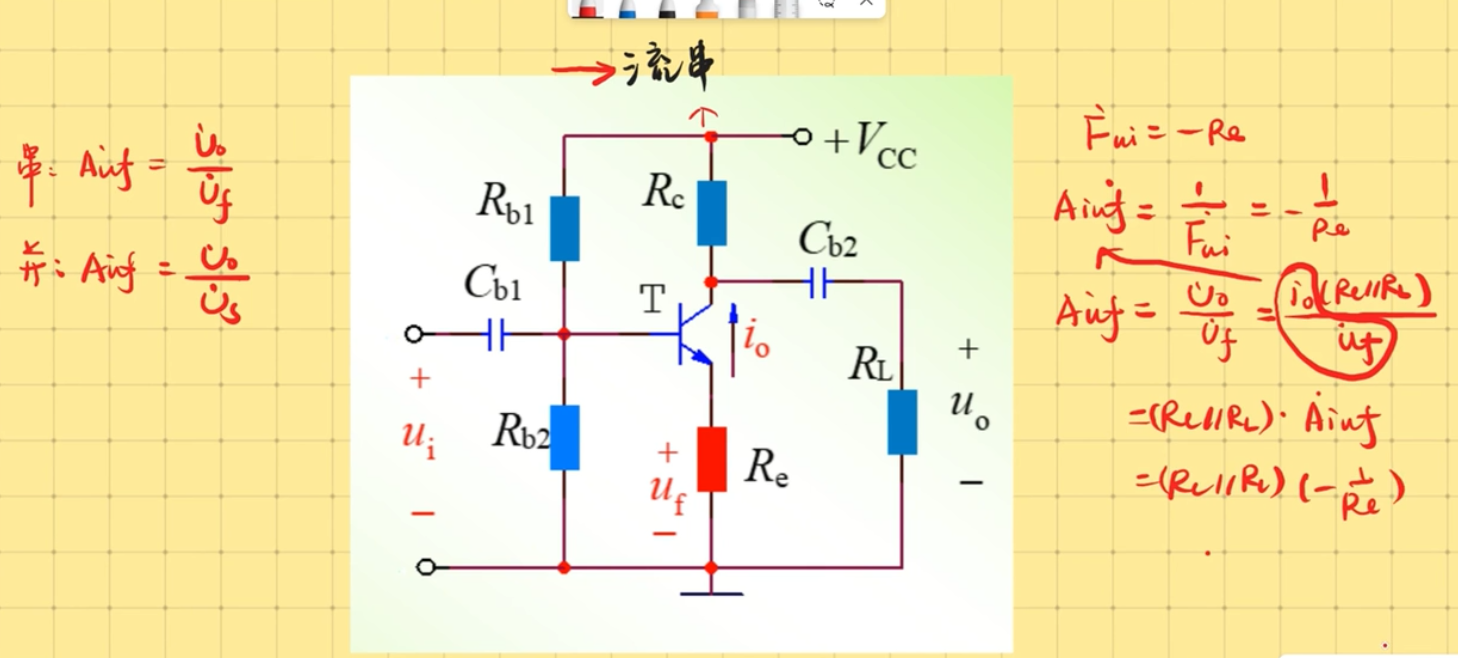 →流串
串: Auf = U̇o / U̇f
并: Auf = U̇o / U̇s
+VCC
Rb1
Rc
Cb2
Cb1
T
io
RL
+
uo
−
+
ui
−
Rb2
+
uf
−
Re
Ḟui = −Re
Aiuf = 1 / Ḟui = − 1 / Re
Auf = U̇o / U̇f = io(Rc//RL) / u̇f
=(Rc//RL)· Ȧiuf
=(Rc//RL) (− 1 / Re)